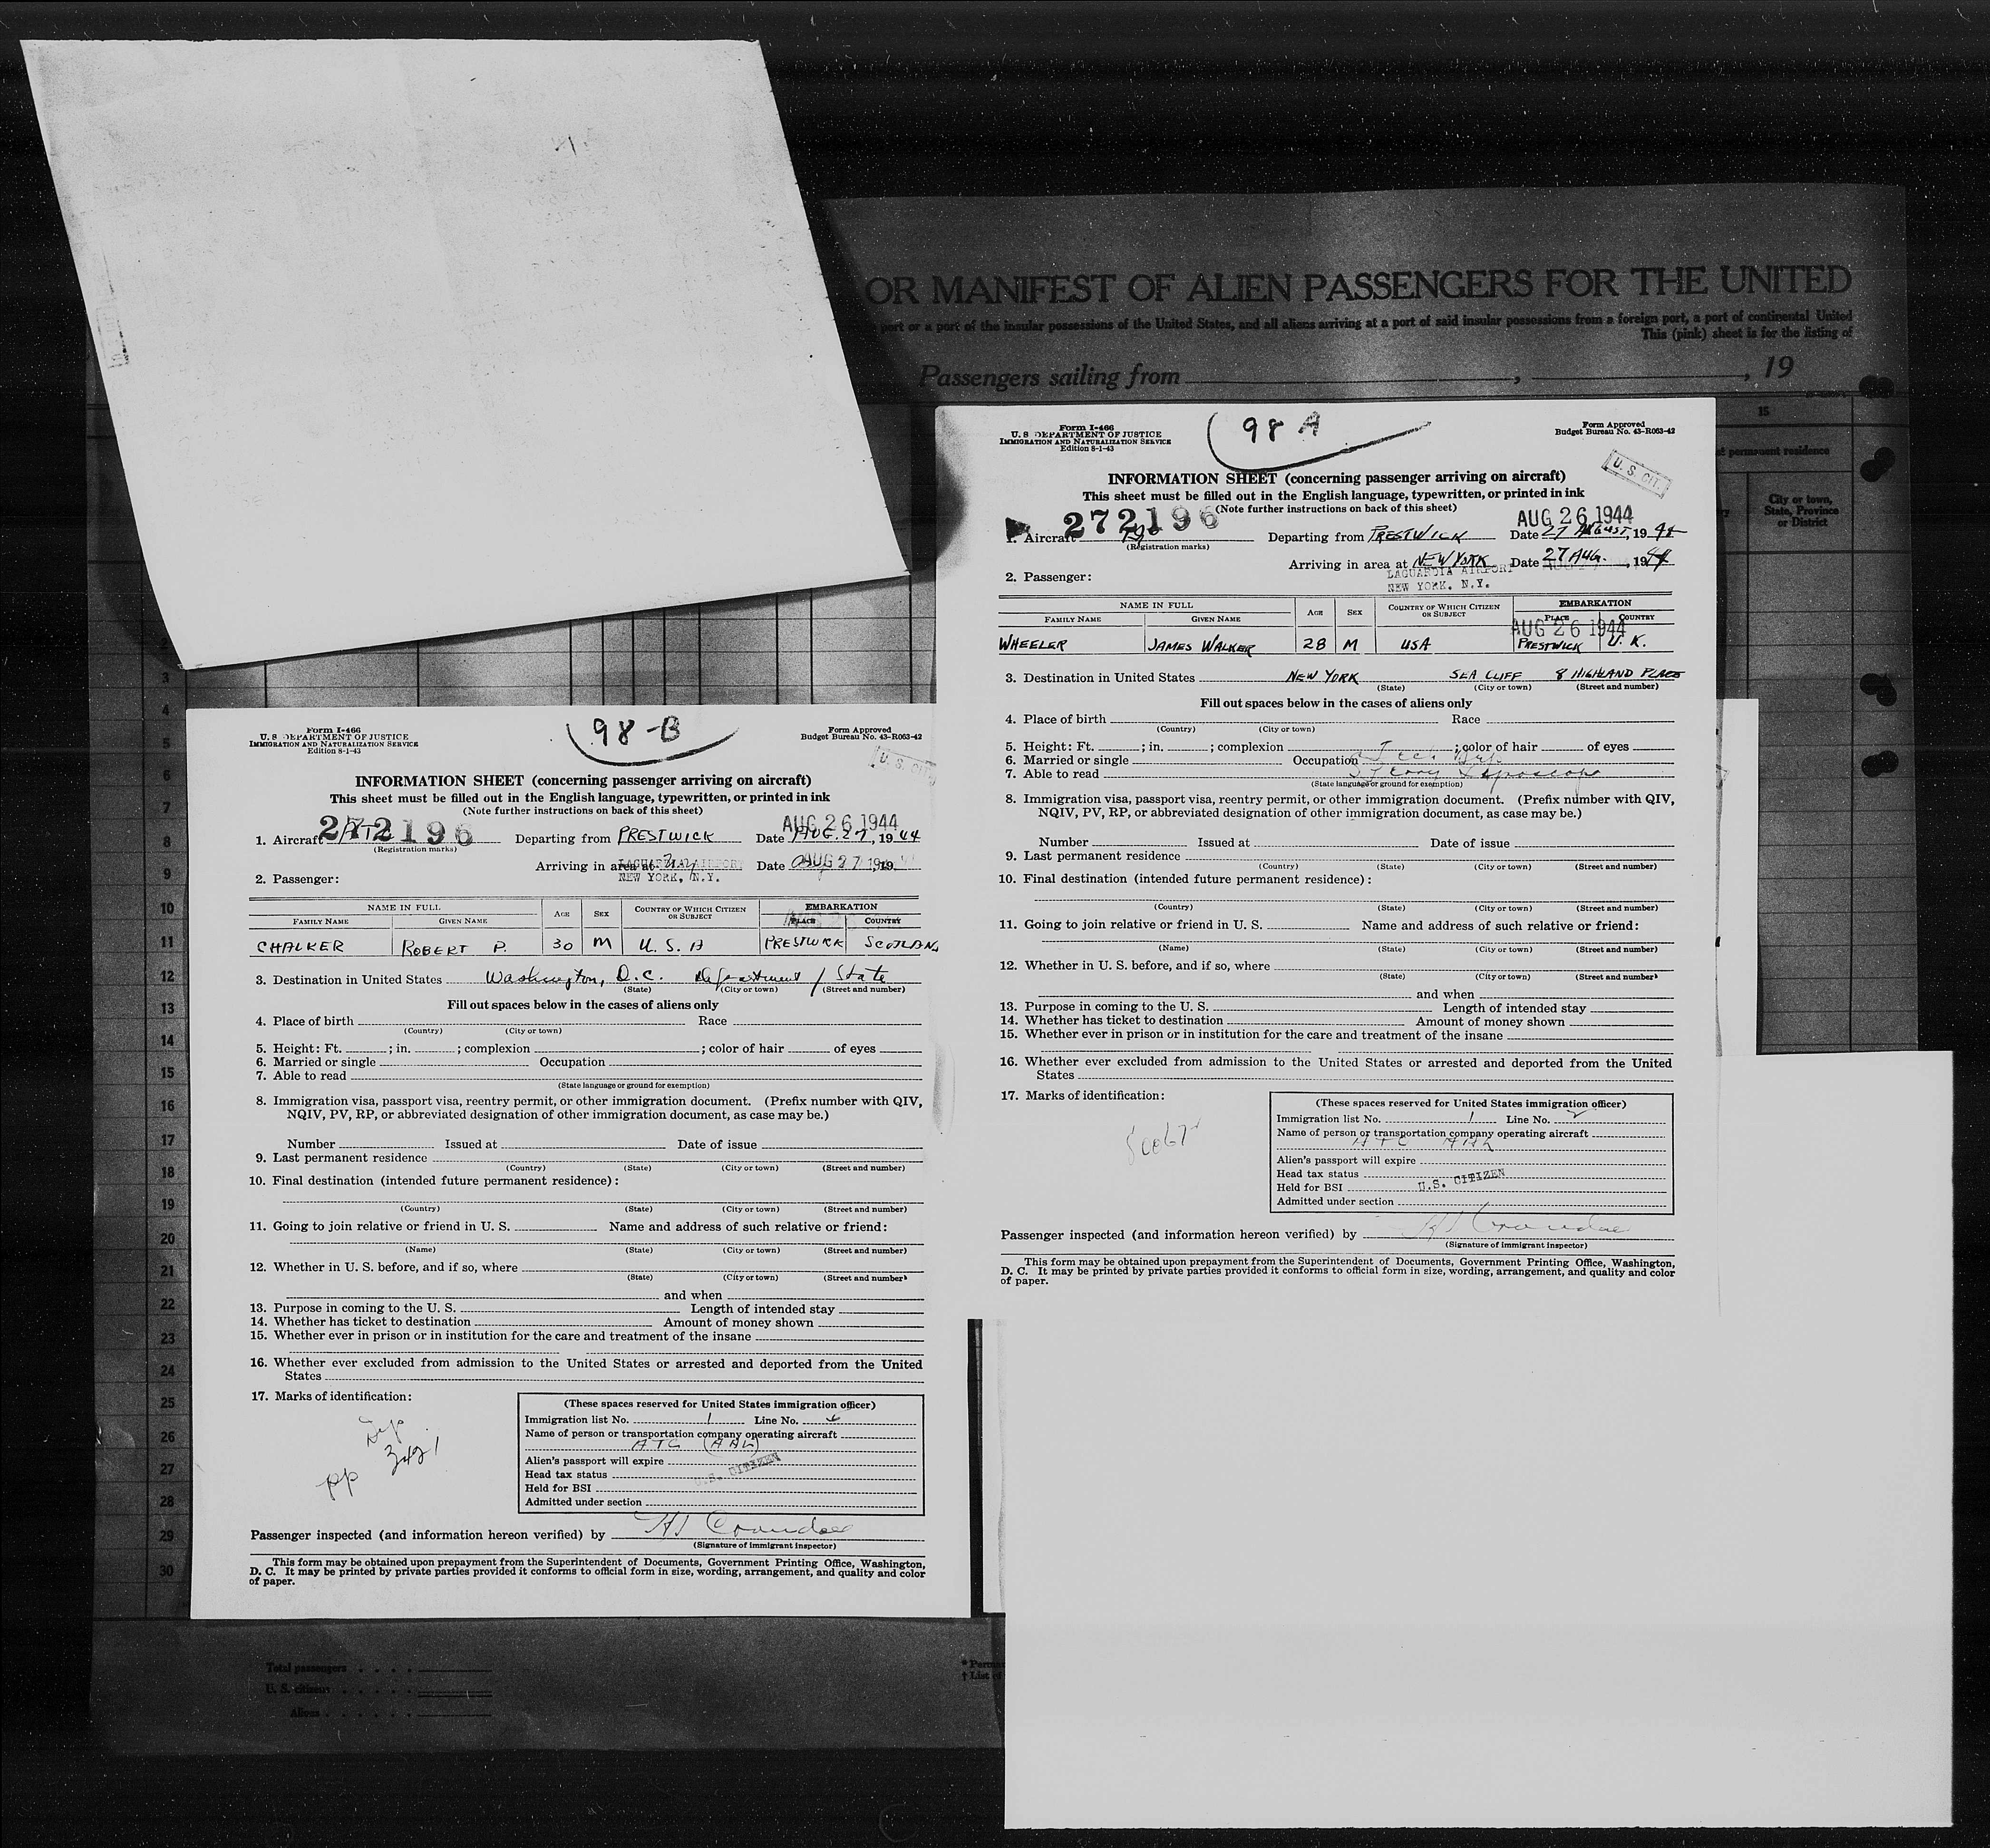 OR MANIFEST OF ALIEN PASSENGERS FOR THE UNITED
port or a port of the insular possessions of the United States, and all aliens arriving at a port of said insular possessions from a foreign port, a port of continental United
This (pink) sheet is for the listing of
Passengers sailing from , , 19
15
permanent residence
City or town, State, Province or District
3
4
5
6
7
8
9
10
11
12
13
14
15
16
17
18
19
20
21
22
23
24
25
26
27
28
29
30
Total passengers
U. S. citizens
Aliens
† List
98-B
Form I-466
U. S DEPARTMENT OF JUSTICE
IMMIGRATION AND NATURALIZATION SERVICE
Edition 8-1-43
Form Approved
Budget Bureau No. 43-R063-42
U. S. CIT.
INFORMATION SHEET (concerning passenger arriving on aircraft)
This sheet must be filled out in the English language, typewritten, or printed in ink
(Note further instructions on back of this sheet)
272196
AUG 26 1944
1. Aircraft Departing from PRESTWICK Date AUG. 27, 1944
(Registration marks)
Arriving in area at Date AUG 27 19
LAGUARDIA AIRPORT
NEW YORK, N.Y.
2. Passenger:
NAME IN FULL AGE SEX COUNTRY OF WHICH CITIZEN OR SUBJECT EMBARKATION
FAMILY NAME GIVEN NAME PLACE COUNTRY
CHALKER ROBERT P. 30 M U. S. A PRESTWICK SCOTLAND
3. Destination in United States Washington, D.C. Department / State
(State) (City or town) (Street and number)
Fill out spaces below in the cases of aliens only
4. Place of birth Race
(Country) (City or town)
5. Height: Ft. ; in. ; complexion ; color of hair of eyes
6. Married or single Occupation
7. Able to read
(State language or ground for exemption)
8. Immigration visa, passport visa, reentry permit, or other immigration document. (Prefix number with QIV,
NQIV, PV, RP, or abbreviated designation of other immigration document, as case may be.)
Number Issued at Date of issue
9. Last permanent residence
(Country) (State) (City or town) (Street and number)
10. Final destination (intended future permanent residence):
(Country) (State) (City or town) (Street and number)
11. Going to join relative or friend in U. S. Name and address of such relative or friend:
(Name) (State) (City or town) (Street and number)
12. Whether in U. S. before, and if so, where
(State) (City or town) (Street and number)
and when
13. Purpose in coming to the U. S. Length of intended stay
14. Whether has ticket to destination Amount of money shown
15. Whether ever in prison or in institution for the care and treatment of the insane
16. Whether ever excluded from admission to the United States or arrested and deported from the United
States
17. Marks of identification:
pp 3421
(These spaces reserved for United States immigration officer)
Immigration list No. 1 Line No.
Name of person or transportation company operating aircraft
ATC (AAL)
Alien's passport will expire
Head tax status
U.S. CITIZEN
Held for BSI
Admitted under section
Passenger inspected (and information hereon verified) by
(Signature of immigrant inspector)
This form may be obtained upon prepayment from the Superintendent of Documents, Government Printing Office, Washington,
D. C. It may be printed by private parties provided it conforms to official form in size, wording, arrangement, and quality and color
of paper.
98 A
Form I-466
U. S DEPARTMENT OF JUSTICE
IMMIGRATION AND NATURALIZATION SERVICE
Edition 8-1-43
Form Approved
Budget Bureau No. 43-R063-42
U. S. CIT.
INFORMATION SHEET (concerning passenger arriving on aircraft)
This sheet must be filled out in the English language, typewritten, or printed in ink
(Note further instructions on back of this sheet)
272196
AUG 26 1944
1. Aircraft Departing from PRESTWICK Date 27 AUGUST, 1944
(Registration marks)
Arriving in area at NEW YORK Date 27 AUG., 1944
LAGUARDIA AIRPORT
NEW YORK, N.Y.
2. Passenger:
NAME IN FULL AGE SEX COUNTRY OF WHICH CITIZEN OR SUBJECT EMBARKATION
FAMILY NAME GIVEN NAME PLACE COUNTRY
AUG 26 1944
WHEELER JAMES WALKER 28 M USA PRESTWICK U. K.
3. Destination in United States NEW YORK SEA CLIFF 8 HIGHLAND PLACE
(State) (City or town) (Street and number)
Fill out spaces below in the cases of aliens only
4. Place of birth Race
(Country) (City or town)
5. Height: Ft. ; in. ; complexion ; color of hair of eyes
6. Married or single Occupation
7. Able to read
(State language or ground for exemption)
8. Immigration visa, passport visa, reentry permit, or other immigration document. (Prefix number with QIV,
NQIV, PV, RP, or abbreviated designation of other immigration document, as case may be.)
Number Issued at Date of issue
9. Last permanent residence
(Country) (State) (City or town) (Street and number)
10. Final destination (intended future permanent residence):
(Country) (State) (City or town) (Street and number)
11. Going to join relative or friend in U. S. Name and address of such relative or friend:
(Name) (State) (City or town) (Street and number)
12. Whether in U. S. before, and if so, where
(State) (City or town) (Street and number)
and when
13. Purpose in coming to the U. S. Length of intended stay
14. Whether has ticket to destination Amount of money shown
15. Whether ever in prison or in institution for the care and treatment of the insane
16. Whether ever excluded from admission to the United States or arrested and deported from the United
States
17. Marks of identification:
(These spaces reserved for United States immigration officer)
Immigration list No. 1 Line No. 2
Name of person or transportation company operating aircraft
ATC AAL
Alien's passport will expire
Head tax status
U.S. CITIZEN
Held for BSI
Admitted under section
Passenger inspected (and information hereon verified) by
(Signature of immigrant inspector)
This form may be obtained upon prepayment from the Superintendent of Documents, Government Printing Office, Washington,
D. C. It may be printed by private parties provided it conforms to official form in size, wording, arrangement, and quality and color
of paper.